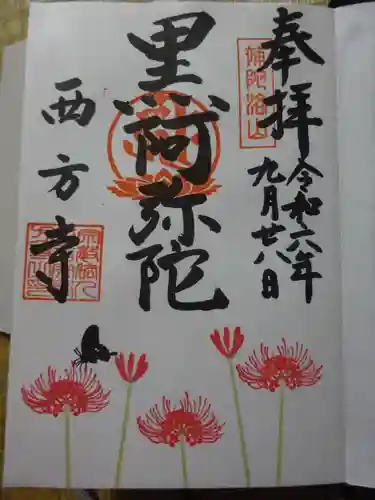 奉拝
補陀洛山
令和六年
九月廿八日
黒阿弥陀
西方寺